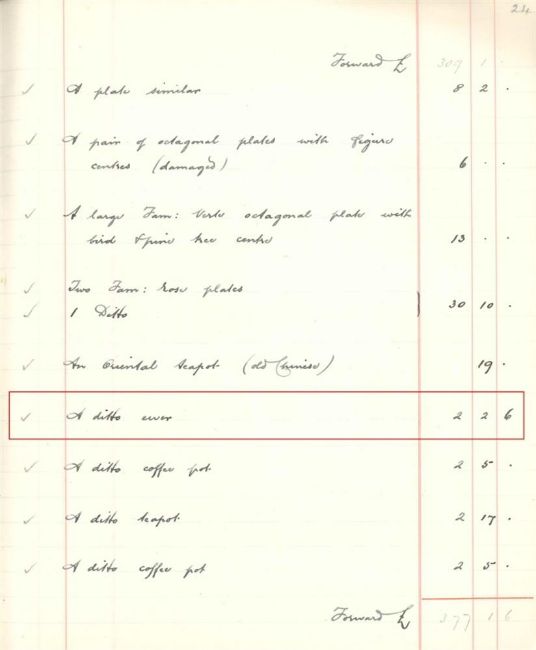 24
Forward £ 309 1 .
✓ A plate similar 8 2 .
✓ A pair of octagonal plates with figure
centres (damaged) 6 . .
✓ A large Fam: Verte octagonal plate with
bird & pine tree centre 13 . .
✓ Two Fam: rose plates
✓ 1 Ditto 30 10 .
✓ An Oriental teapot (old Chinese) 19 .
✓ A ditto ewer 2 2 6
✓ A ditto coffee pot 2 5 .
✓ A ditto teapot 2 17 .
✓ A ditto coffee pot 2 5 .
Forward £ 377 1 6